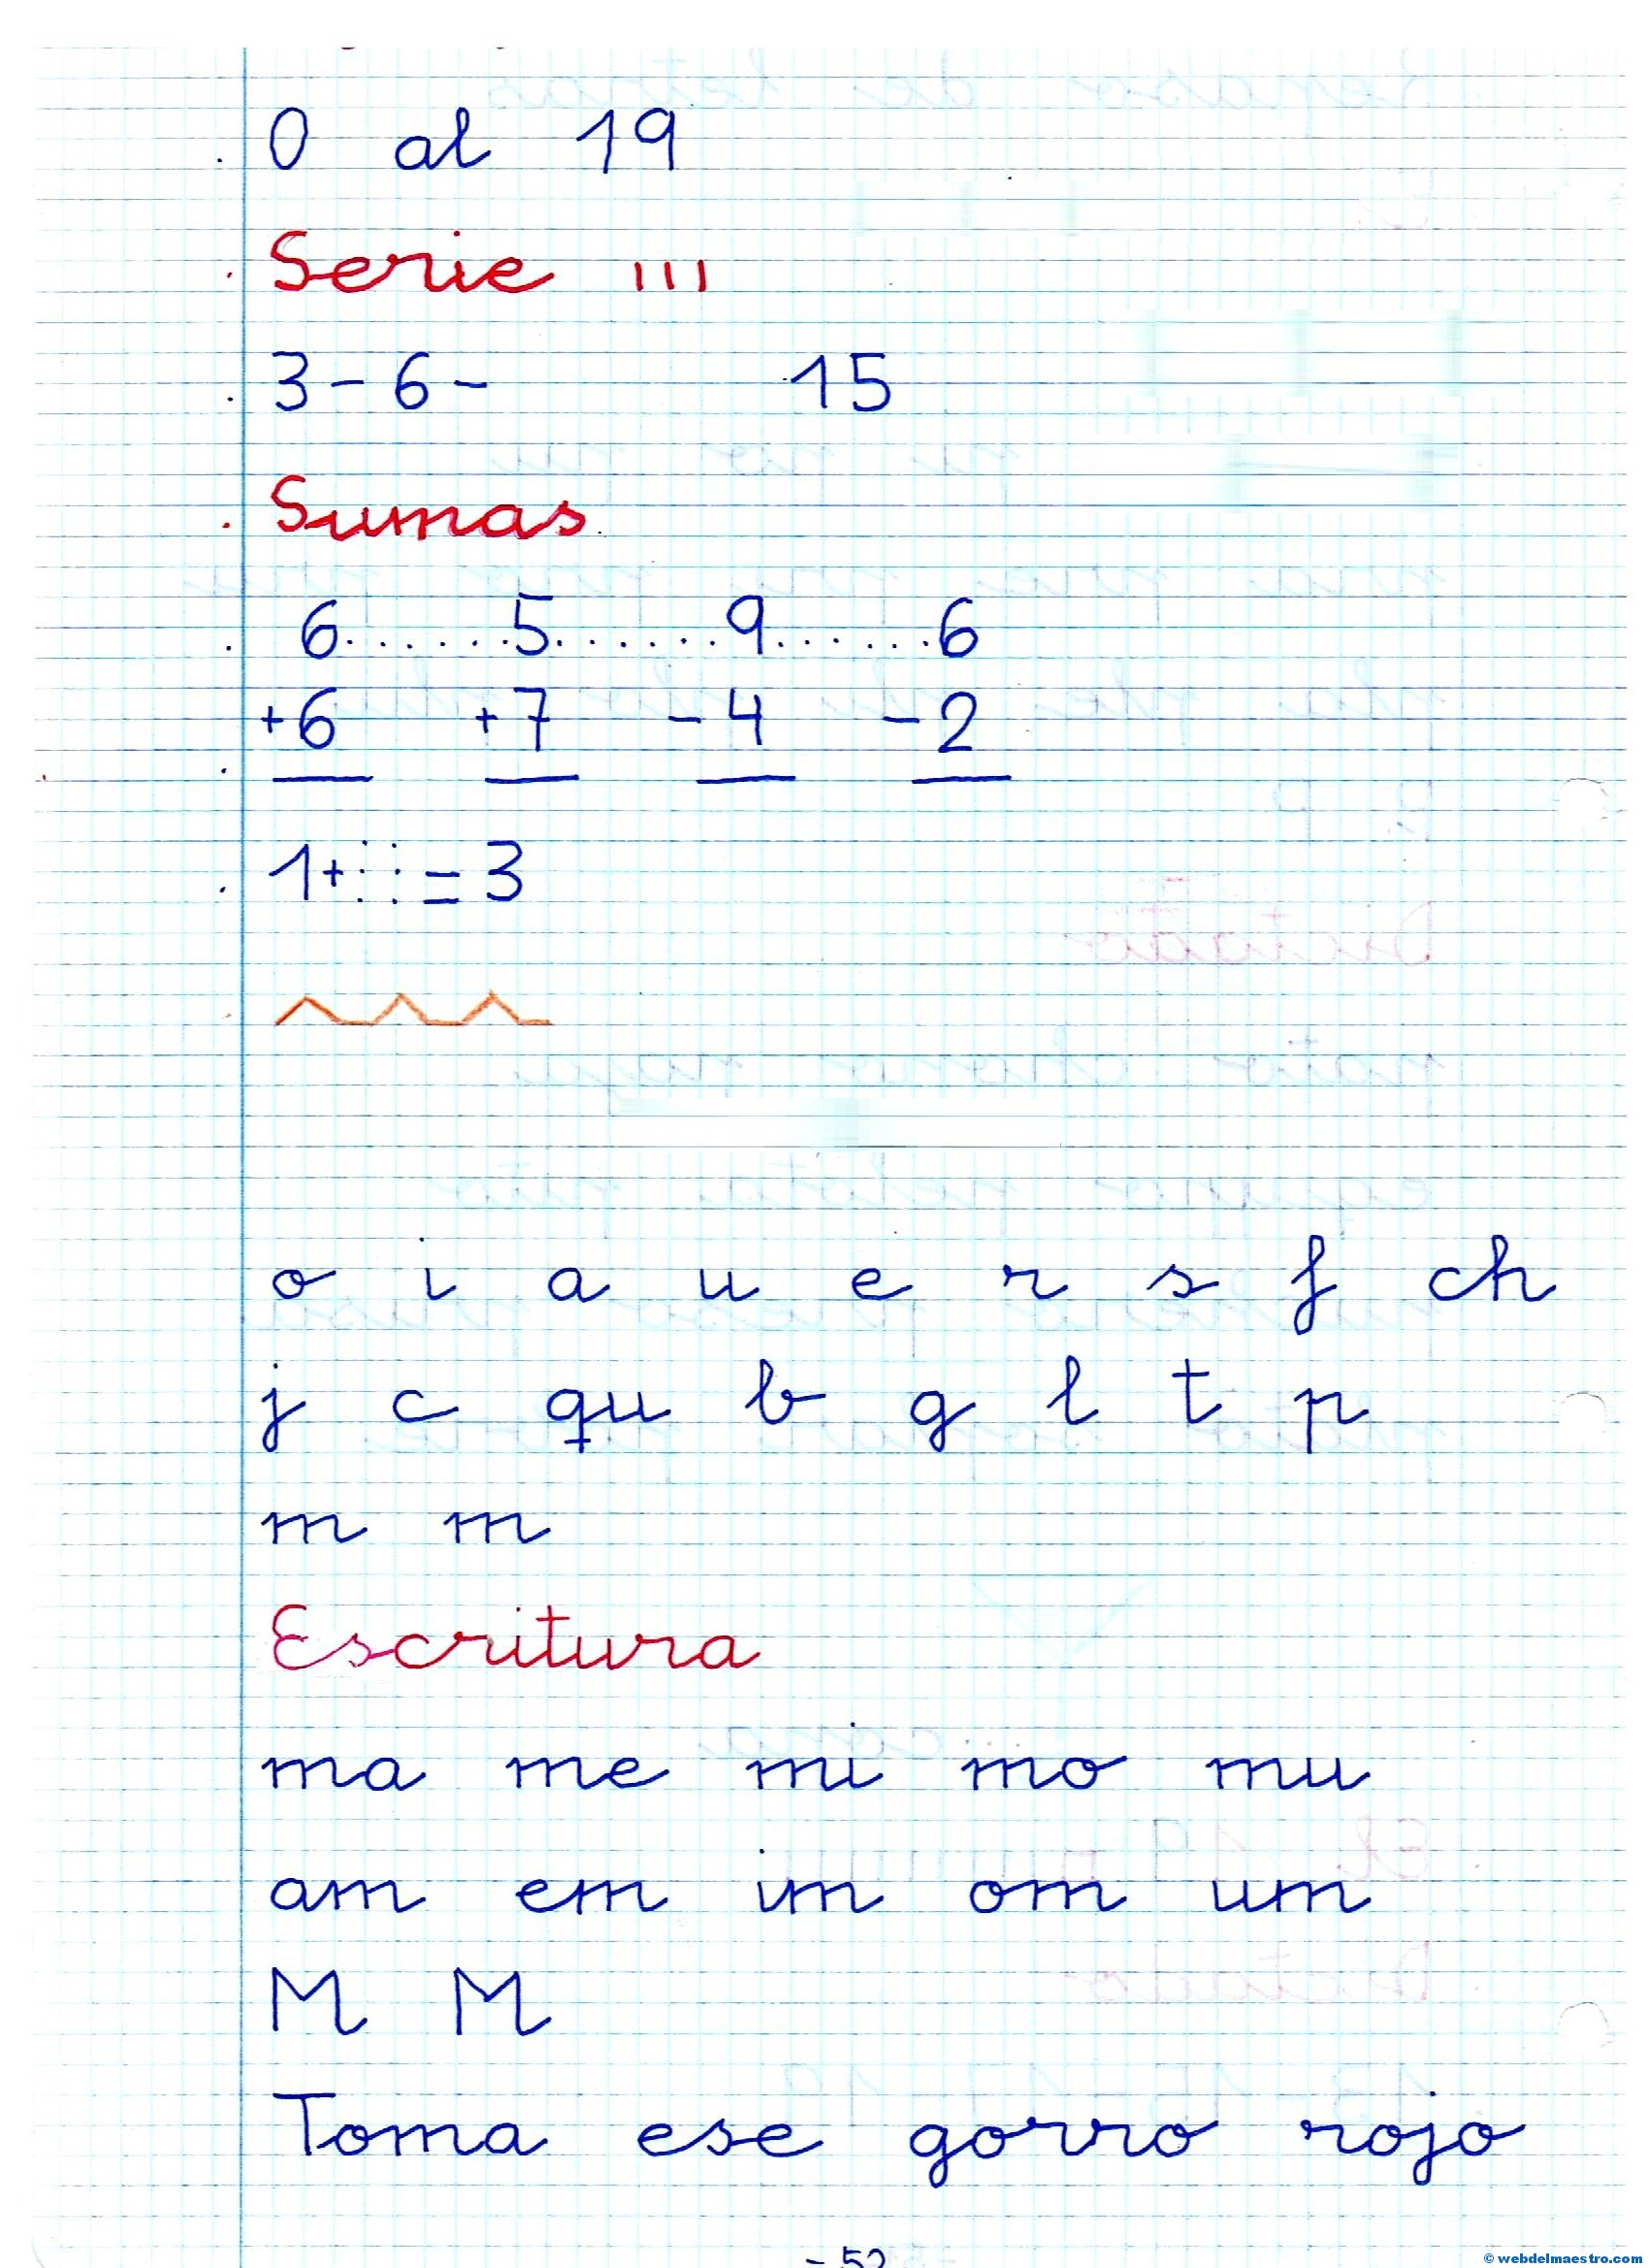 0 al 19
Serie III
3-6- 15
Sumas
6.......5.......9.......6
+6 +7 -4 -2
1+ =3
o i a u e r s f ch
j c qu b g l t p
m m
Escritura
ma me mi mo mu
am em im om um
M M
Toma ese gorro rojo
- 52
© webdelmaestro.com